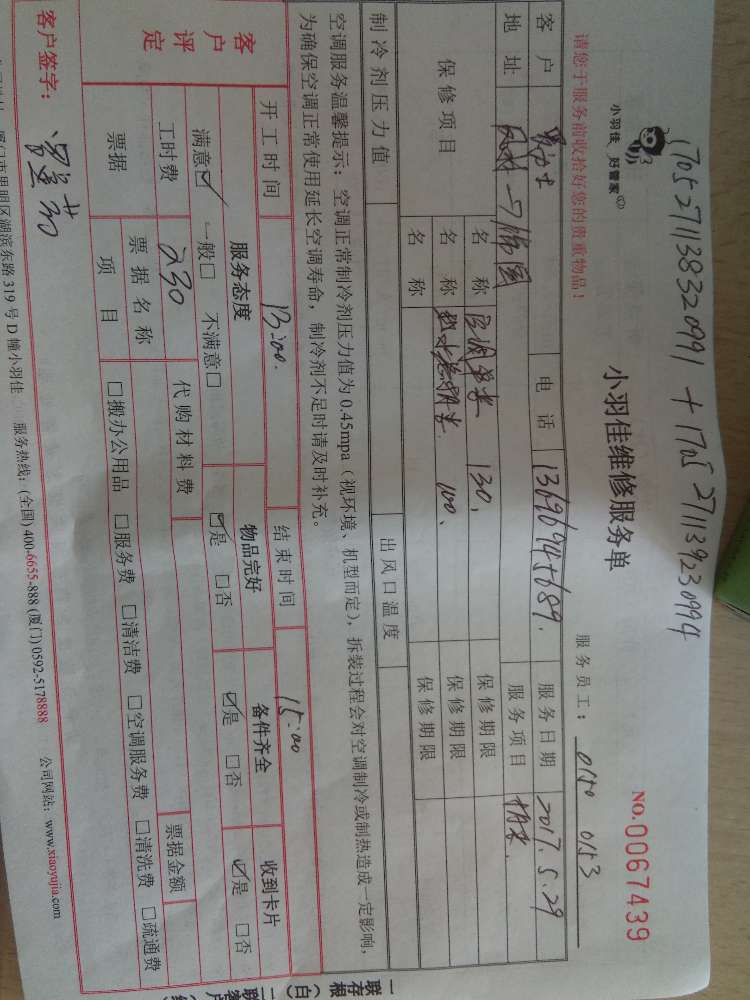 1705271138320991 + 1705271139230994
小羽佳 好管家
小羽佳维修服务单
NO.0067439
请您于服务前收拾好您的贵重物品！
服务员工： 0150 0153
客户 电话 13696945689. 服务日期 2017.5.29
地址 服务项目
保修项目 名称 130, 保修期限
名称 100、 保修期限
名称 保修期限
制冷剂压力值 出风口温度
空调服务温馨提示：空调正常制冷剂压力值为0.45mpa（视环境、机型而定），拆装过程会对空调制冷或制热造成一定影响，
为确保空调正常使用延长空调寿命，制冷剂不足时请及时补充。
开工时间 13:00. 结束时间 15:00
客户评定 服务态度 物品完好 备件齐全 收到卡片
满意☑ 一般□ 不满意□ ☑是 □否 ☑是 □否 ☑是 □否
工时费 230 代购材料费 票据金额
票据 票据名称
项目 □搬办公用品 □服务费 □清洁费 □空调服务费 □清洗费 □疏通费
客户签字：
厦门市思明区湖滨东路319号D幢小羽佳 服务热线：(全国) 400-6655-888 (厦门) 0592-5178888 公司网站：www.xiaoyujia.com
一联存根（白） 二联客户